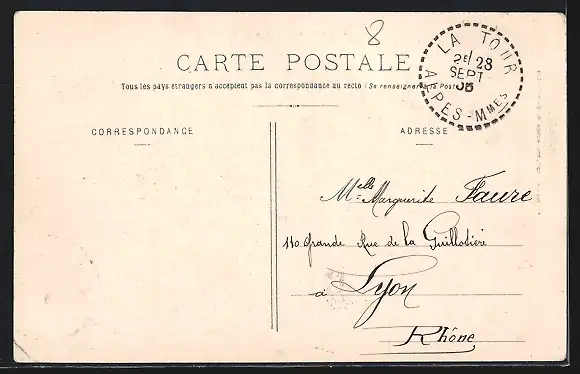 8
CARTE POSTALE
Tous les pays étrangers n'acceptent pas la correspondance au recto (Se renseigner à la Poste
LA TOUR
2E/ 28
SEPT
05
ALPES-MMES
CORRESPONDANCE
ADRESSE
Melle Marguerite Faure
110 Grande Rue de la Guillotière
à Lyon
Rhône